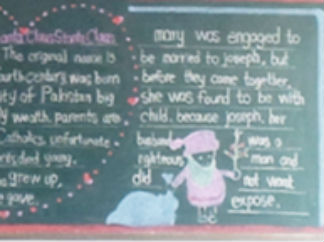 Santa Claus Santa Claus
The original name is
fourth century was born
city of Pakistan big
wealth. parents are
Catholics, unfortunate
died young.
grew up,
gave.
mary was engaged to
be married to joseph, but
before they came together,
she was found to be with
child. because joseph, her
husband was a
righteous man and
did not want
expose.